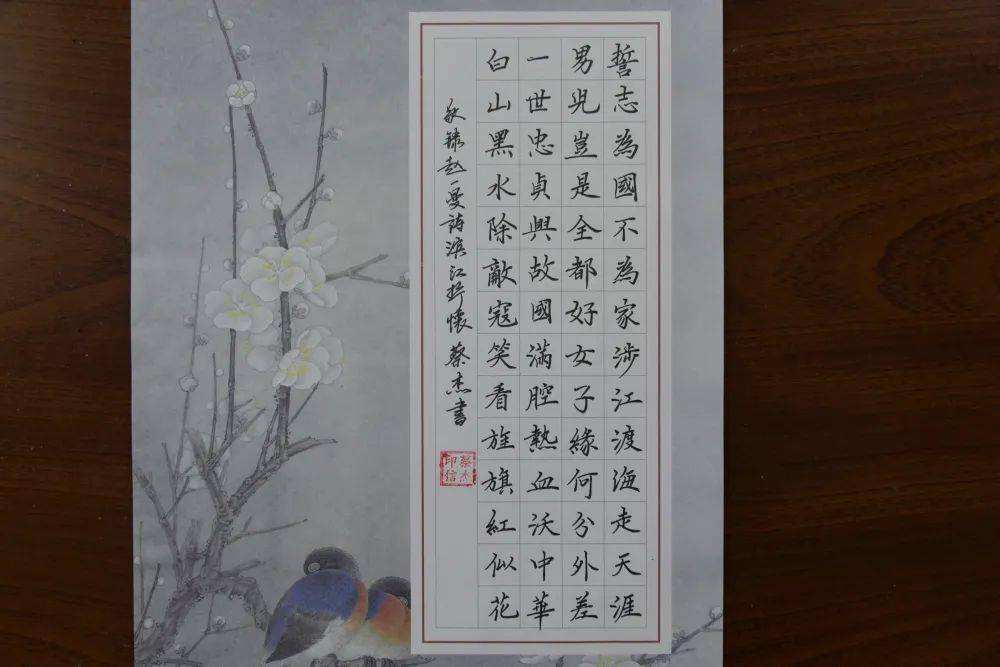 誓志為國不為家涉江渡海走天涯
男兒豈是全都好女子緣何分外差
一世忠貞興故國滿腔熱血沃中華
白山黑水除敵寇笑看旌旗紅似花
敬錄趙一曼詩濱江抒懷蔡杰書
蔡杰
印信